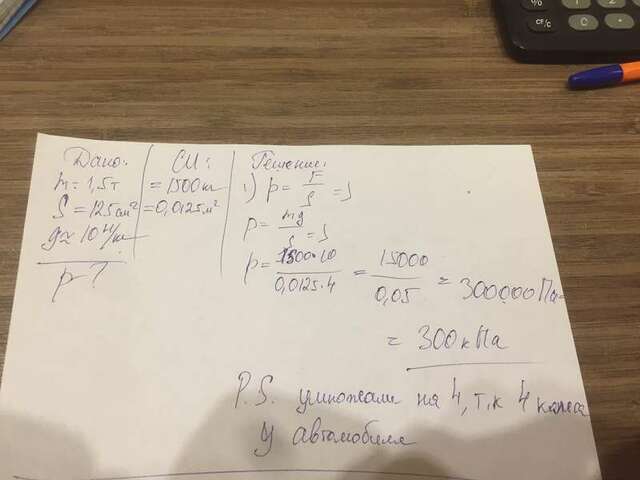 Дано:
m = 1,5т
S = 125см²
g ≈ 10 Н/кг
p - ?
СИ:
= 1500кг
= 0,0125м²
Решение:
1) p = F/S =>
p = mg/S =>
p = 1500·10/0,0125·4 = 15000/0,05 = 300000Па =
= 300кПа
P.S. умножали на 4, т.к 4 колеса
у автомобиля